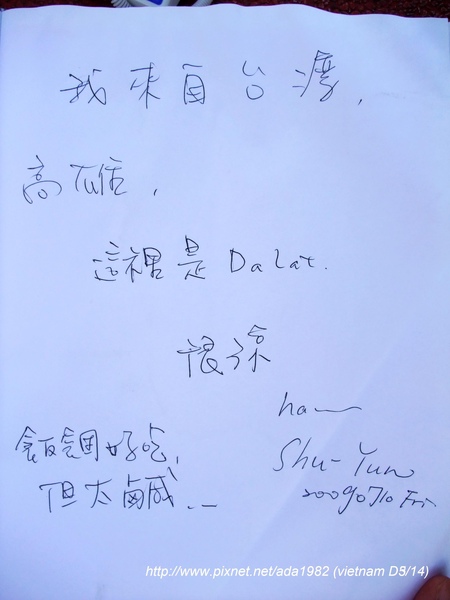 我來自台灣,
高雄,
這裡是 Dalat.
很涼
飯團好吃,
但太鹹..
Shu-Yun
20090710 Fri
http://www.pixnet.net/ada1982 (vietnam D5/14)